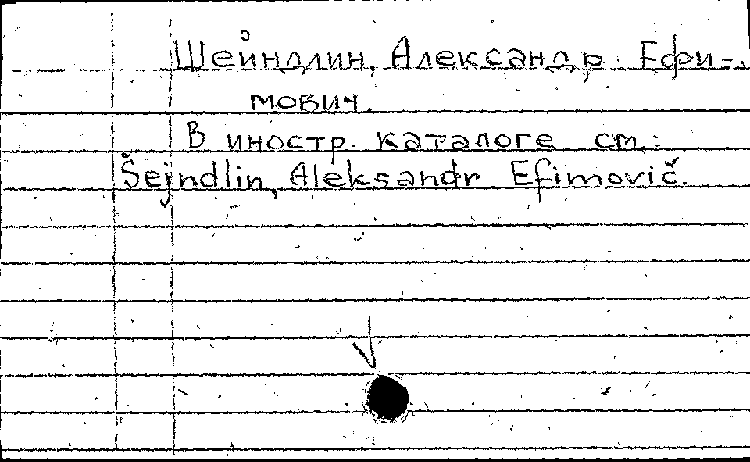 Шейндлин, Александр Ефи-
мович.
В иностр. каталоге см.:
Šejndlin, Aleksandr Efimovič.